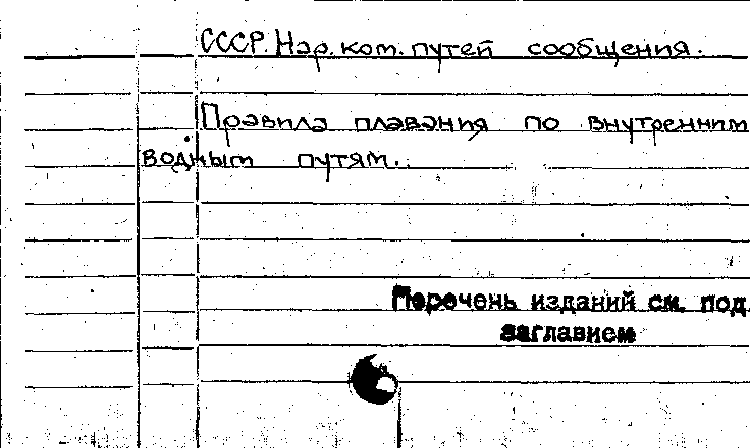 СССР. Нар. ком. путей сообщения.
Правила плавания по внутренним
водным путям.
Перечень изданий см. под
заглавием